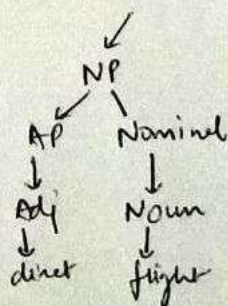 NP
AP Nominal
Adj Noun
direct flight